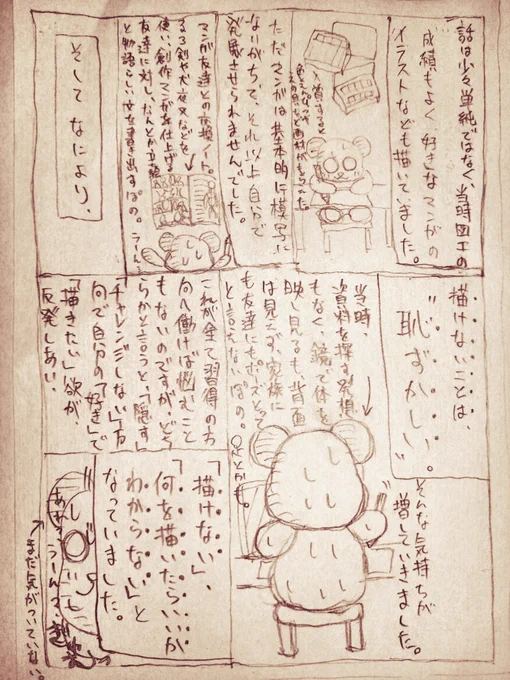 話は少々単純ではなく、当時図工の
成績もよく、好きなマンガの
イラストなども描いていました。
ただマンガは基本的に模写に
ないがちで、それ以上自分で
発展させられませんでした。
マンガ友達との交換ノート。
るろ剣や犬夜叉などを
使い、創作マンガを仕上げる
友達に対し、なんとか立ち絵
と物語らしい文を書き出すぽの。うーん
そして なにより、
描けないことは、
"恥ずかしい"。
そんな気持ちが
増していきました。
当時、
資料を探す発想
もなく、鏡で体を
映し見るも、背面
は見えず、家族に
も友達にもポーズとって
と言えないぽの。
これが全て習得の方
向へ働けば悩むこと
もないのですが、どち
らかと言うと、「隠す」
「チャレンジしない」方
向で自分の「好き」で
「描きたい」欲が、
反発しあい、
「描けない」、
「何を描いたらいいか
わからない」と
なっていました。
まだ気がついていない。